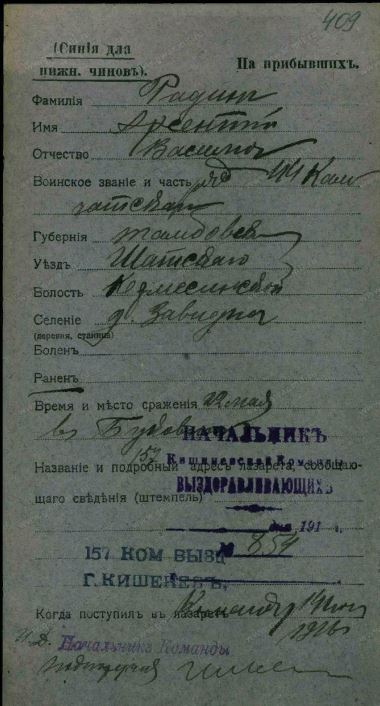 409
(Синія для
нижн. чиновъ).
На прибывшихъ.
Фамилія Радинъ
Имя Арсентій
Отчество
Воинское званіе и часть ряд 44 Кам
чатскаго
Губернія Тамбовск
Уѣздъ Шатскаго
Волость
Селеніе д. Завидна
(деревня, станица)
Боленъ
Раненъ
Время и мѣсто сраженія 22 мая
въ Буковинѣ
НАЧАЛЬНИКЪ
157
Кишиневской Команды
Названіе и подробный адресъ лазарета, сообщаю-
щаго свѣдѣнія (штемпель)
ВЫЗДОРАВЛИВАЮЩИХЪ
дня 191 г.
№ 859
157 КОМ ВЫЗД
Г. КИШЕНЕВЪ.
Когда поступилъ въ лазаретъ
1916
И. Д. Начальника Команды